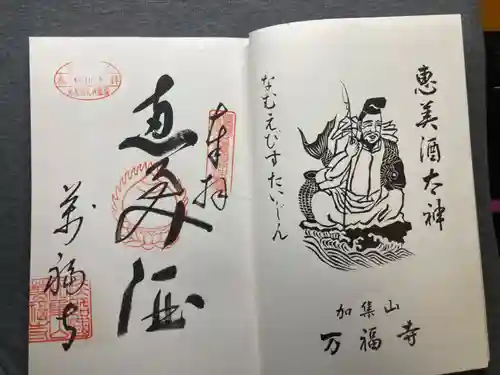 恵美酒太神
なむえびすたいじん
加集山
万福寺
奉拝
恵美酒
萬福寺